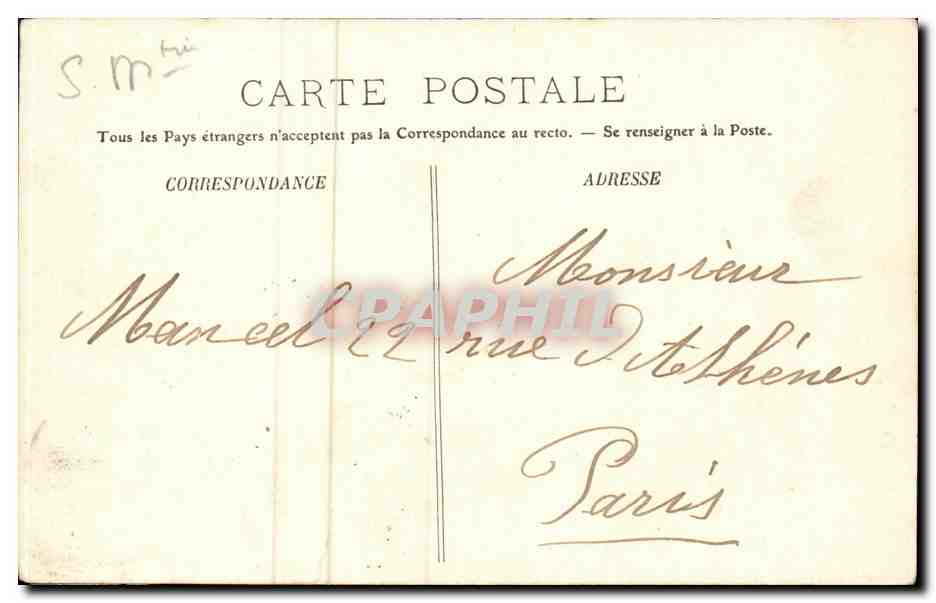 S. M
CARTE POSTALE
Tous les Pays étrangers n'acceptent pas la Correspondance au recto. — Se renseigner à la Poste.
CORRESPONDANCE
ADRESSE
Monsieur
Marcel 22 rue d'Athénes
Paris
CPAPHIL